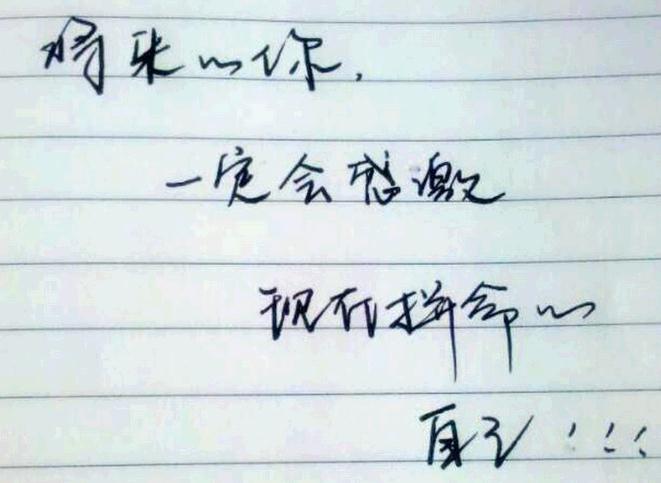 将来的你，
一定会感激
现在拼命的
自己!!!